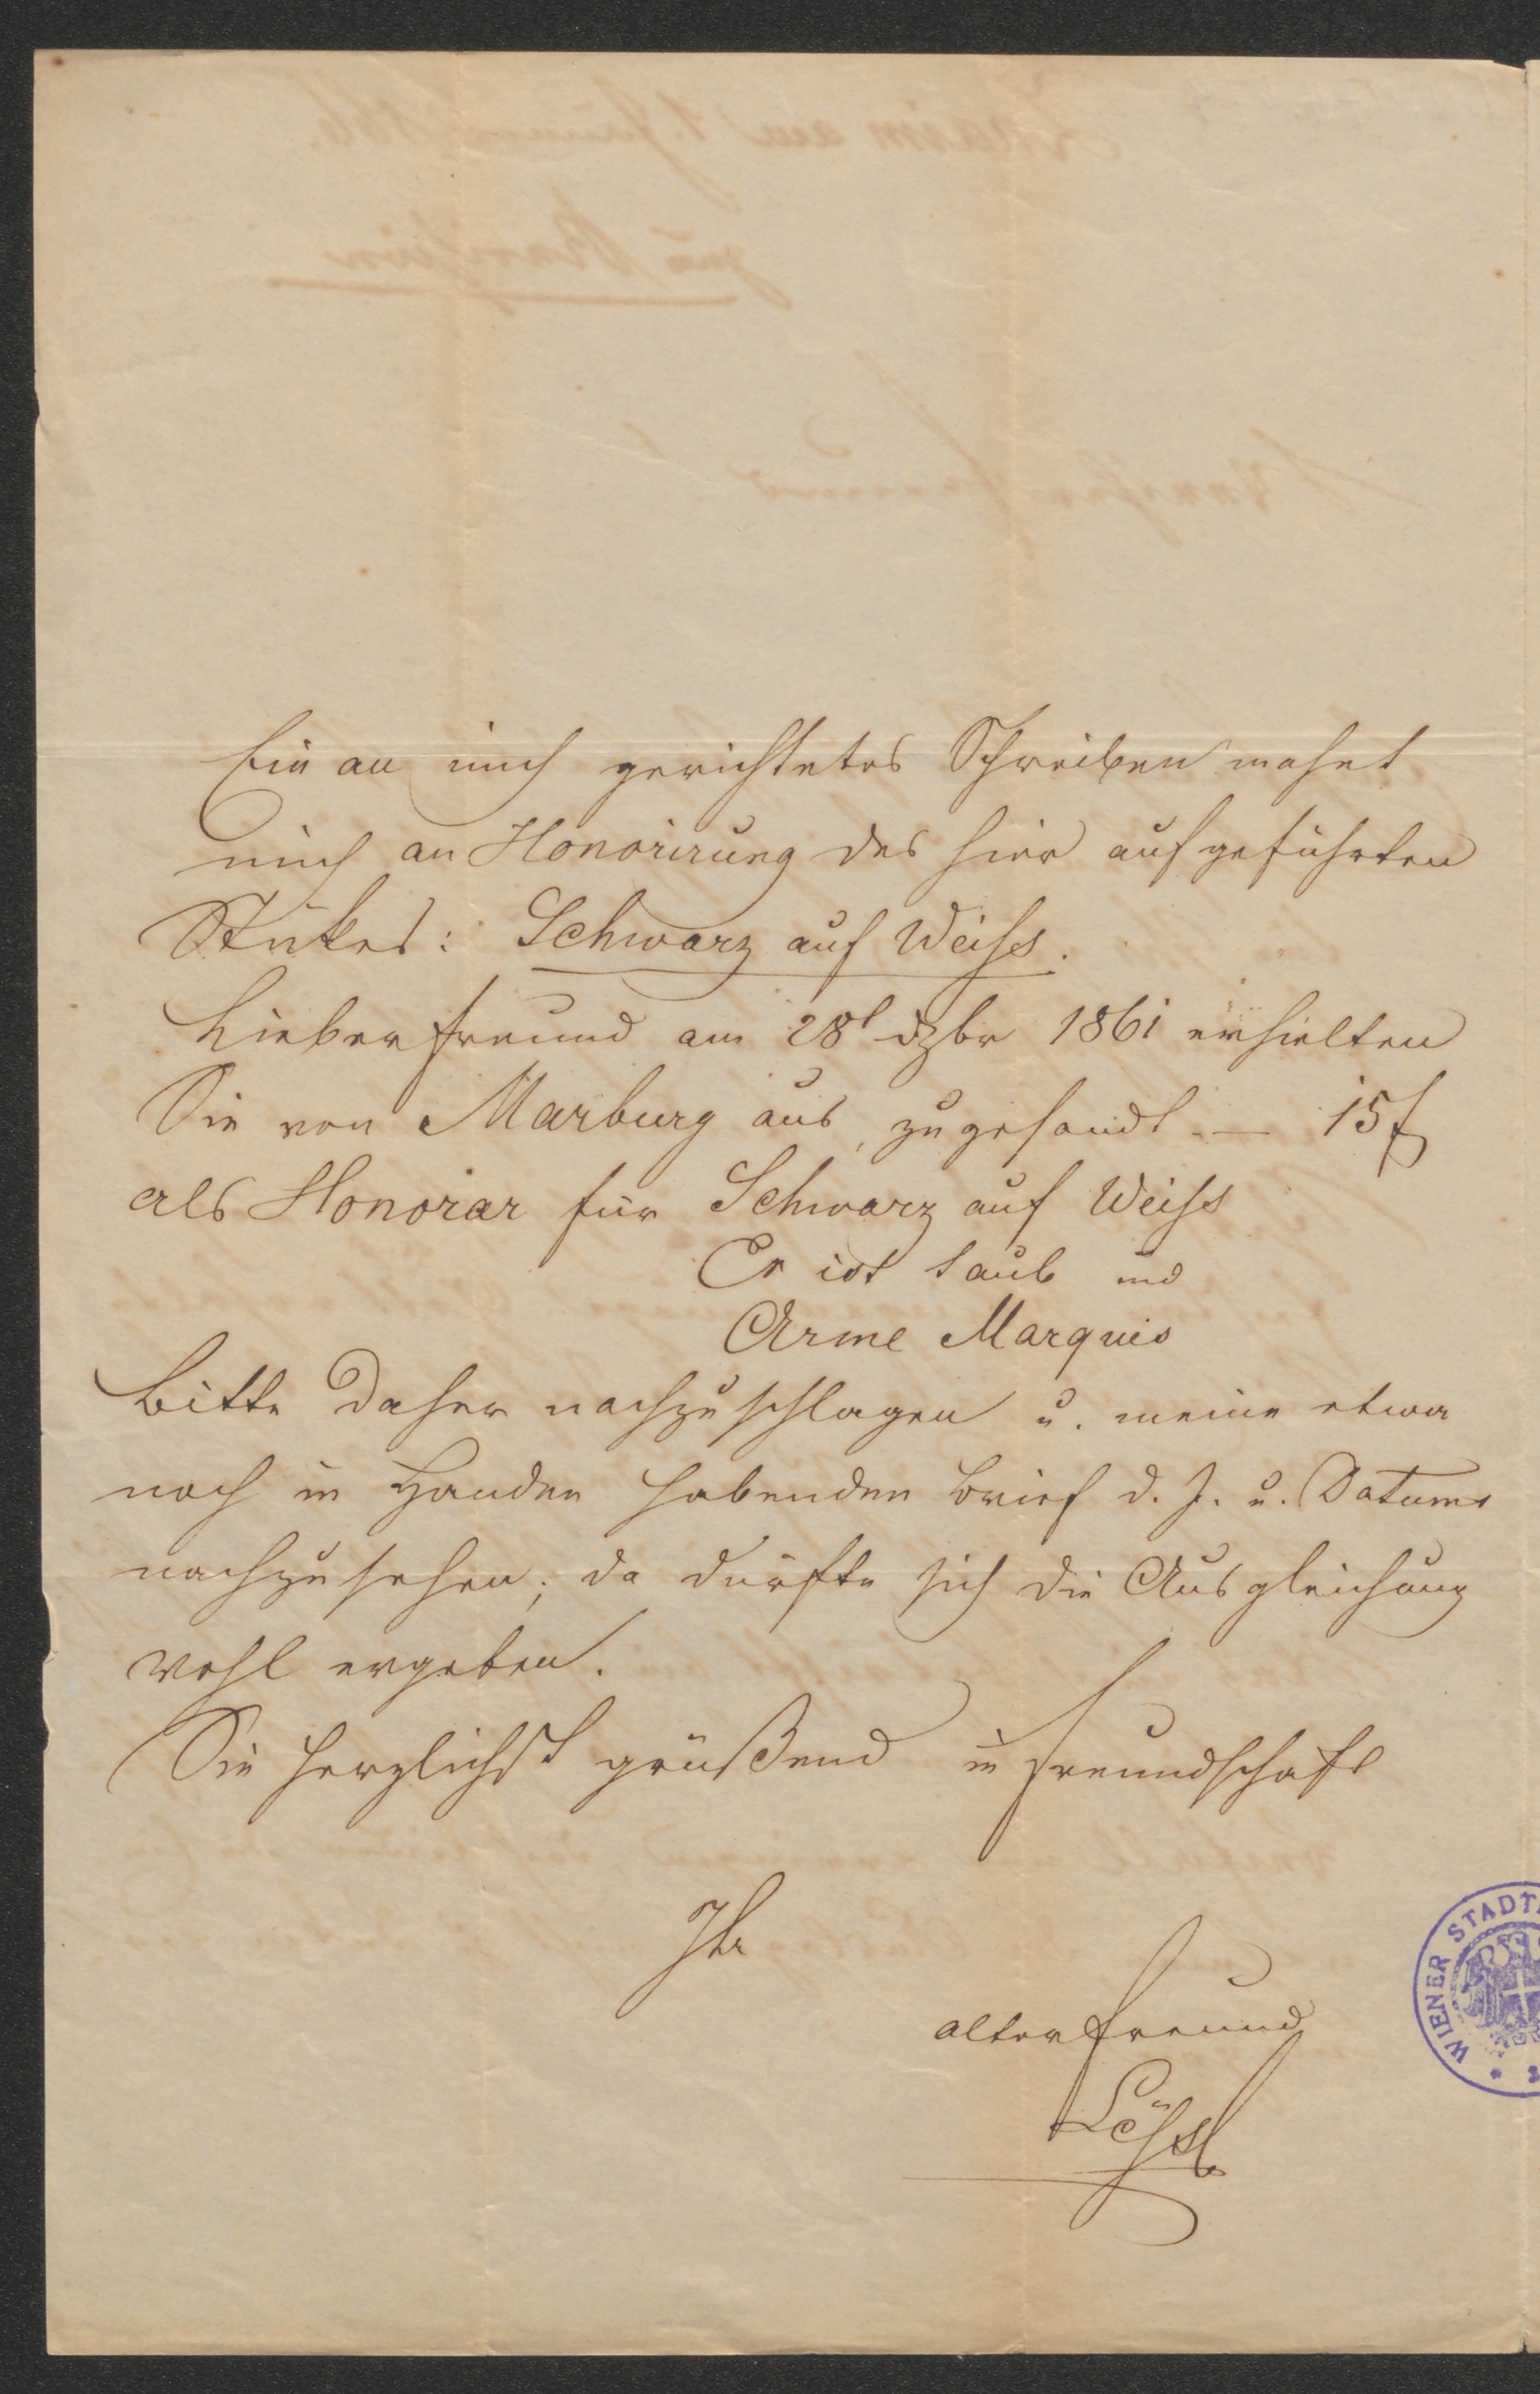 Ein an mich gerichtetes Schreiben mahnt
mich an Honorirung des hier aufgeführten
Stükes: Schwarz auf Weiss.
Lieber Freund am 28t dzbr 1861 erhielten
Sie von Marburg aus, zugesandt — 15f
als Honorar für Schwarz auf Weiss
Er ist taub und
Arme Marquis
Bitte daher nachzuschlagen u. meine etwa
noch in Handen habenden Brief d. J. u. Datums
nachzusehen; da dürfte sich die Ausgleichung
wohl ergeben.
Sie herzlichst grüßend in Freundschaft
Ihr
alter Freund
WIENER STADT